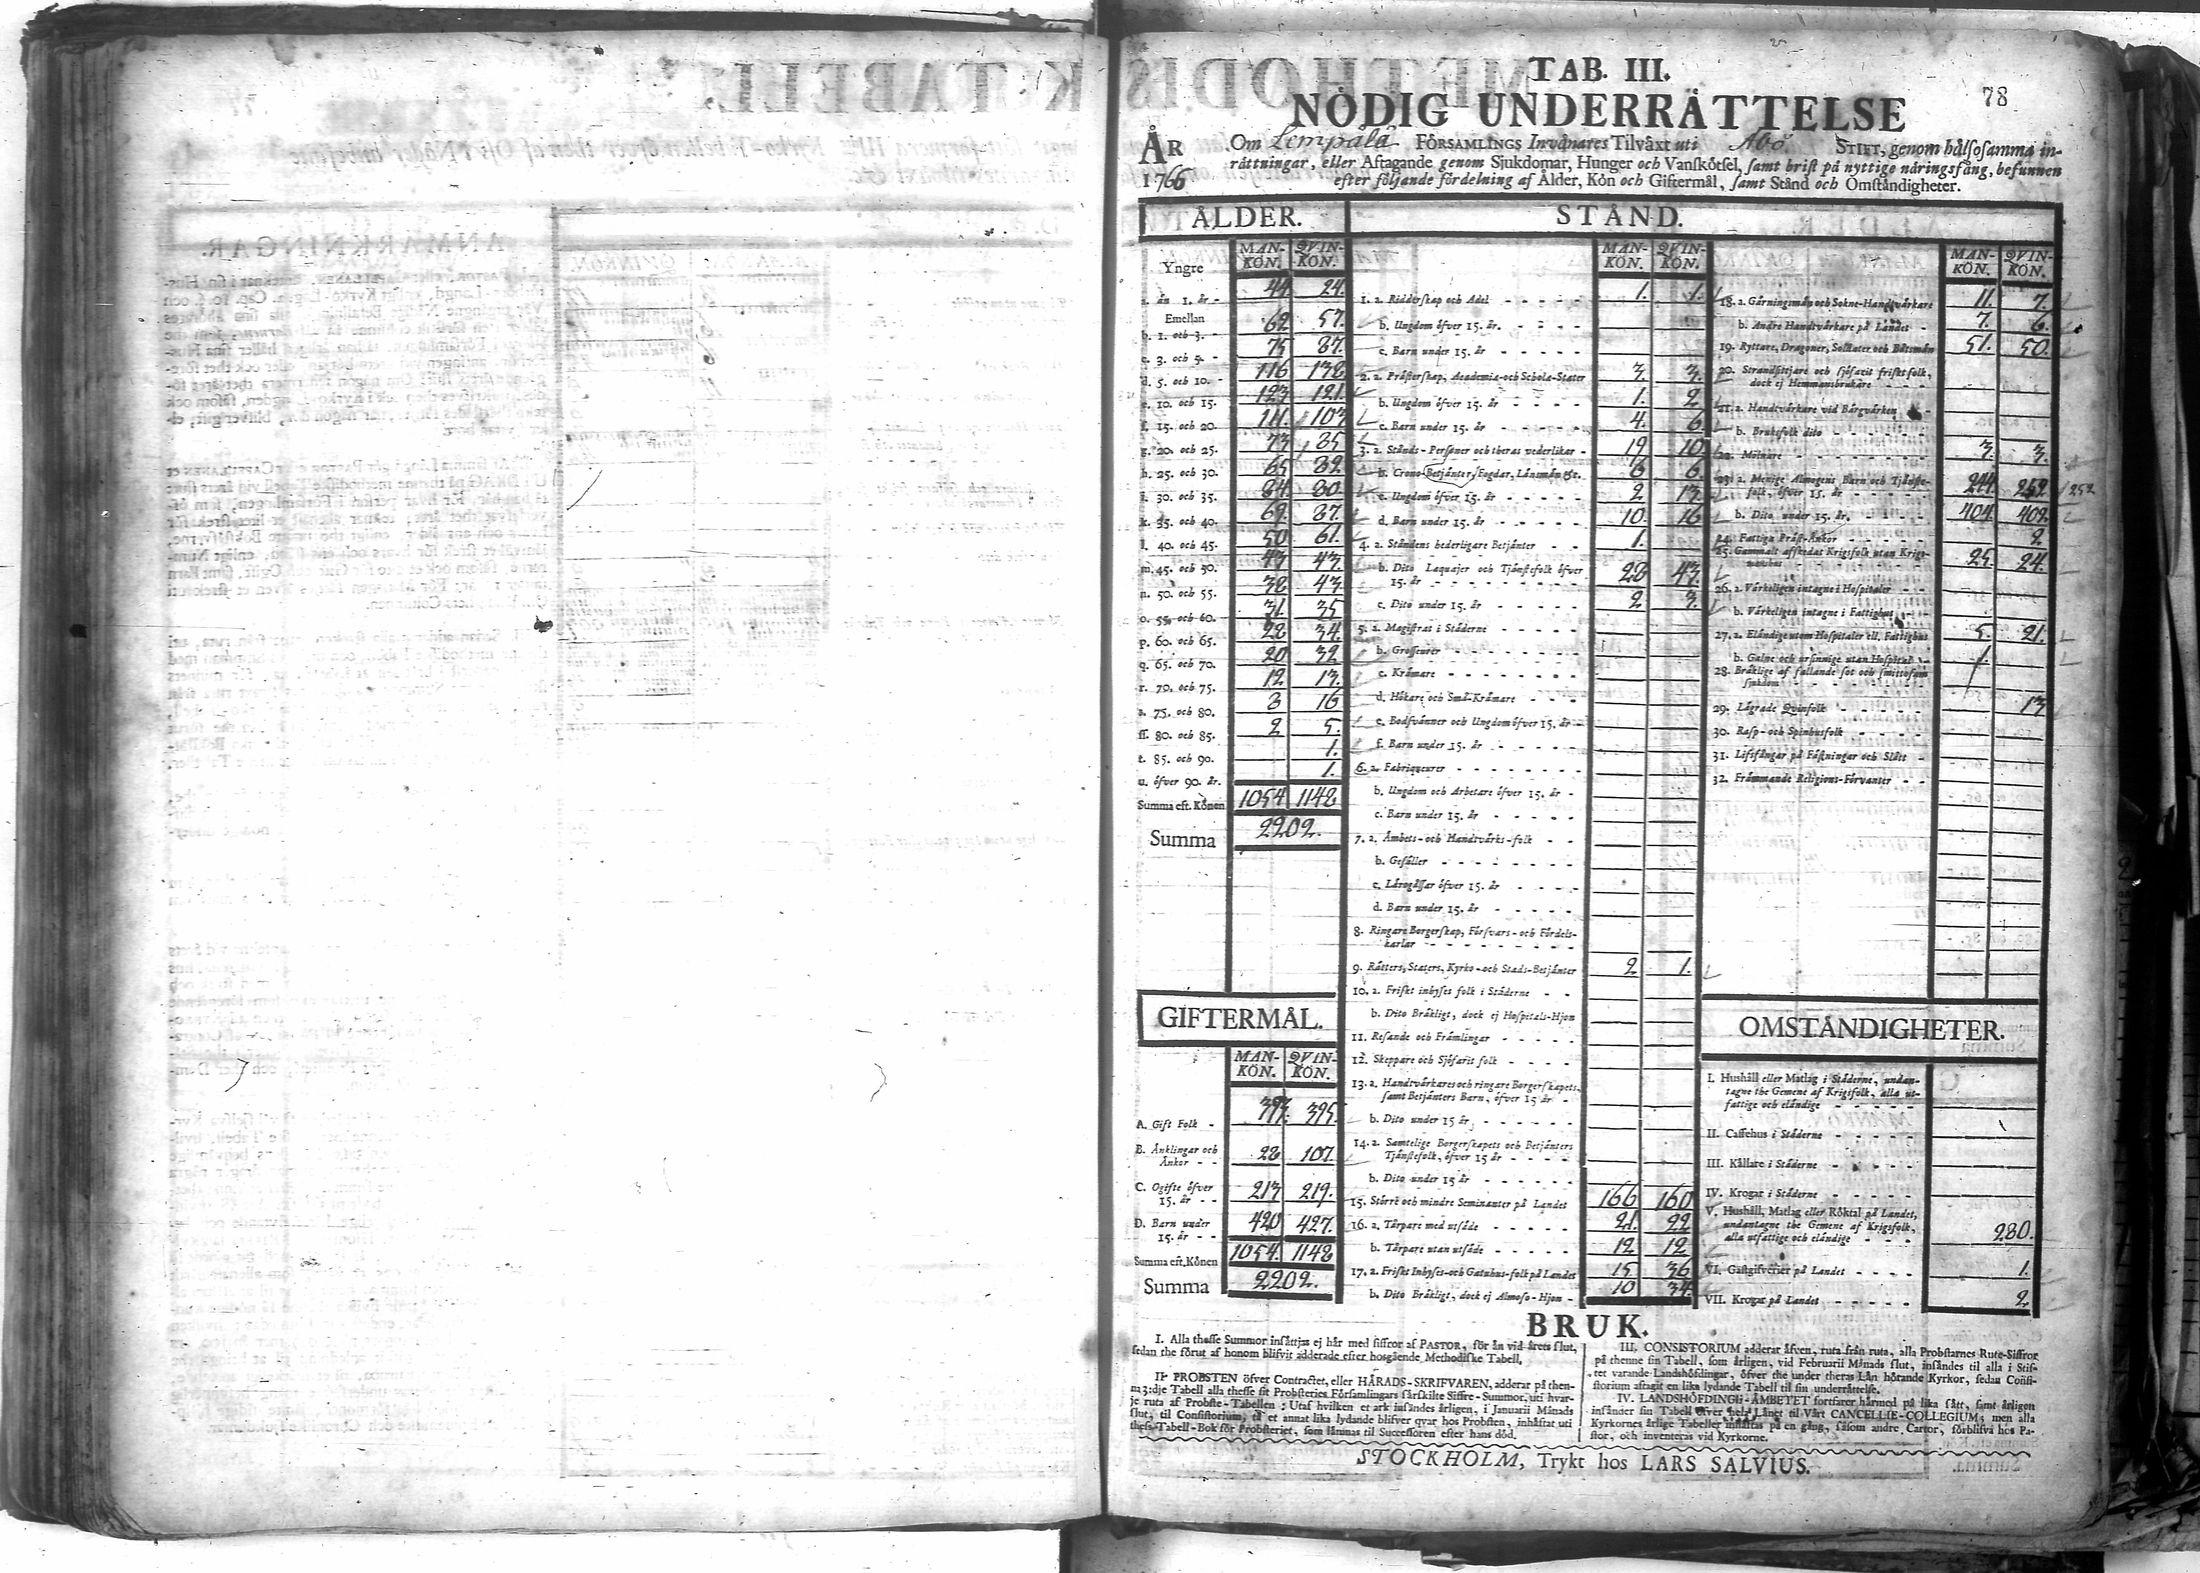 78
TAB. III.
NÖDIG UNDERRÄTTELSE
ÅR 1766
Om Lempälä FÖRSAMLINGS Invånares Tilväxt uti Åbo STIFT, genom hälsosamma in-
rättningar, eller Aftagande genom Sjukdomar, Hunger och Vanskötsel, samt brist på nyttige näringsfång, befunnen
efter följande fördelning af Ålder, Kön och Giftermål, samt Stånd och Omständigheter.
ÅLDER.
MAN-KÖN. QVIN-KÖN.
Yngre
a. än 1. år - 44 24.
Emellan
b. 1. och 3. - 62 57.
c. 3. och 5. - 75 87.
d. 5. och 10. - 116 138
e. 10. och 15. 123 121.
f. 15. och 20. 111. 107
g. 20. och 25. 73 85
h. 25. och 30. 65 82
i. 30. och 35. 84 80.
k. 35. och 40. 69. 87.
l. 40. och 45. 50 61.
m. 45. och 50. 43 43.
n. 50. och 55. 38 43
o. 55. och 60. 31. 35
p. 60. och 65. 28 34.
q. 65. och 70. 20 32
r. 70. och 75. 12 17.
s. 75. och 80. 3 16
ss. 80. och 85. 2 5.
t. 85. och 90. 1.
u. öfver 90. år. 1.
Summa eft. Könen 1054 1148
Summa 2202.
GIFTERMÅL.
MAN-KÖN. QVIN-KÖN.
A. Gift Folk - 393. 395.
B. Änklingar och
Änkor - - 28 107
C. Ogifte öfver
15. år - - 213 219.
D. Barn under
15. år - - 420 427.
Summa eft. Könen 1054. 1148
Summa 2202.
STÅND.
MAN-KÖN. QVIN-KÖN.
1. a. Ridderskap och Adel 1. 1.
b. Ungdom öfver 15. år.
c. Barn under 15. år
2. a. Prästerskap, Academiæ-och Schole-Stater 3. 3.
b. Ungdom öfver 15. år 1. 2
c. Barn under 15. år 4. 6.
3. a. Stånds-Personer och theras vederlikar - 19 10
b. Crono-Betjänter, Fogdar, Länsmän &c. 6 6.
c. Ungdom öfver 15. år 2 13
d. Barn under 15. år 10. 16
4. a. Ståndens hederligare Betjänter 1.
b. Dito Laquajer och Tjänstefolk öfver
15. år 28 43.
c. Dito under 15. år 2 3.
5. a. Magistrat i Städerne
b. Grosseurer
c. Krämare
d. Hökare och Små-Krämare
e. Bodsvänner och Ungdom öfver 15. år
f. Barn under 15. år
6. a. Fabriqueurer
b. Ungdom och Arbetare öfver 15. år
c. Barn under 15. år
7. a. Ämbets-och Handtvärks-folk
b. Gesäller
c. Lärogåssar öfver 15. år
d. Barn under 15. år
8. Ringare Borgerskap, Försvars-och Fördels-
karlar
9. Rätters, Staters, Kyrko-och Stads-Betjänter 2 1.
10. a. Friskt inhyses folk i Städerne
b. Dito Bräkligt, dock ej Hospitals-Hjon
11. Resande och Främlingar
12. Skeppare och Sjöfarit folk
13. a. Handtvärkares och ringare Borgerskapets,
samt Betjänters Barn, öfver 15 år
b. Dito under 15 år
14. a. Samtelige Borgerskapets och Betjänters
Tjänstefolk, öfver 15 år
b. Dito under 15 år
15. Större och mindre Seminanter på Landet 166 160
16. a. Tårpare med utsäde 21. 22
b. Tårpare utan utsäde 12 12
17. a. Friskt Inhyses-och Gatuhus-folk på Landet 15 36
b. Dito Bräkligt, dock ej Almoso-Hjon - 10 34.
MAN-KÖN. QVIN-KÖN.
18. a. Gärningsmän och Sokne-Handtvärkare 11. 7.
b. Andre Handtvärkare på Landet 7. 6.
19. Ryttare, Dragoner, Soldater och Båtsmän 51. 50.
20. Strandsittjare och sjöfarit friskt folk,
dock ej Hemmansbrukare
21. a. Handtvärkare vid Bärgvärken
b. Bruksfolk dito
22. Mölnare 3. 3.
23. a. Menige Almogens Barn och Tjänste-
folk, öfver 15. år 244 252 252
b. Dito under 15. år. 404. 402.
24. Fattiga Präst-Änkor 2
25. Gammalt afskedat Krigsfolk utan Krigs-
manshus 25. 24.
26. a. Värkeligen intagne i Hospitaler
b. Värkeligen intagne i Fattighus
27. a. Eländige utom Hospitaler ell. Fattighus 5. 21.
b. Galne och ursinnige utan Hospital 1.
28. Bräklige af fallande sot och smittosam
sjukdom
29. Lägrade Qvinfolk 13
30. Rasp-och Spinhusfolk
31. Lifsfångar på Fästningar och Slått
32. Främmande Religions-Förvanter
OMSTÄNDIGHETER.
I. Hushåll eller Matlag i Städerne, undan-
tagne the Gemene af Krigsfolk, alla ut-
fattige och eländige
II. Caffehus i Städerne
III. Källare i Städerne
IV. Krogar i Städerne
V. Hushåll, Matlag eller Röktal på Landet,
undantagne the Gemene af Krigsfolk,
alla utfattige och eländige 280.
VI. Gästgifverier på Landet 1.
VII. Krogar på Landet 2.
BRUK.
I. Alla thesse Summor insättjas ej här med siffror af PASTOR, för än vid årets slut,
sedan the förut af honom blifvit adderade efter hosgående Methodiske Tabell.
II. PROBSTEN öfver Contractet, eller HÄRADS-SKRIFVAREN, adderar på then-
na 3:dje Tabell alla thesse sit Probsteries Församlingars särskilte Siffre-Summor, uti hvar-
je ruta af Probste-Tabellen: Utaf hvilken et ark insändes årligen, i Januarii Månads
slut, til Consistorium, et annat lika lydande blifver qvar hos Probsten, inhäftat uti
thess-Tabell-Bok för Probsteriet, som lämnas til Successoren efter hans död.
III. CONSISTORIUM adderar äfven, ruta från ruta, alla Probstarnes Rute-Siffror
på thenne sin Tabell, som årligen, vid Februarii Månads slut, insändes til alla i Stif-
tet varande Landshöfdingar, öfver the under theras Län hörande Kyrkor, sedan Consi-
storium aftagit en lika lydande Tabell til sin underrättelse.
IV. LANDSHÖFDINGE-ÄMBETET fortfarer härmed på lika sätt, samt årligen
insänder sin Tabell öfver hela Länet til Vårt CANCELLIE-COLLEGIUM; men alla
Kyrkornes årlige Tabeller inhäftas på en gång, såsom andre Cartor, förblifva hos Pa-
stor, och inventeras vid Kyrkorne.
STOCKHOLM, Trykt hos LARS SALVIUS.